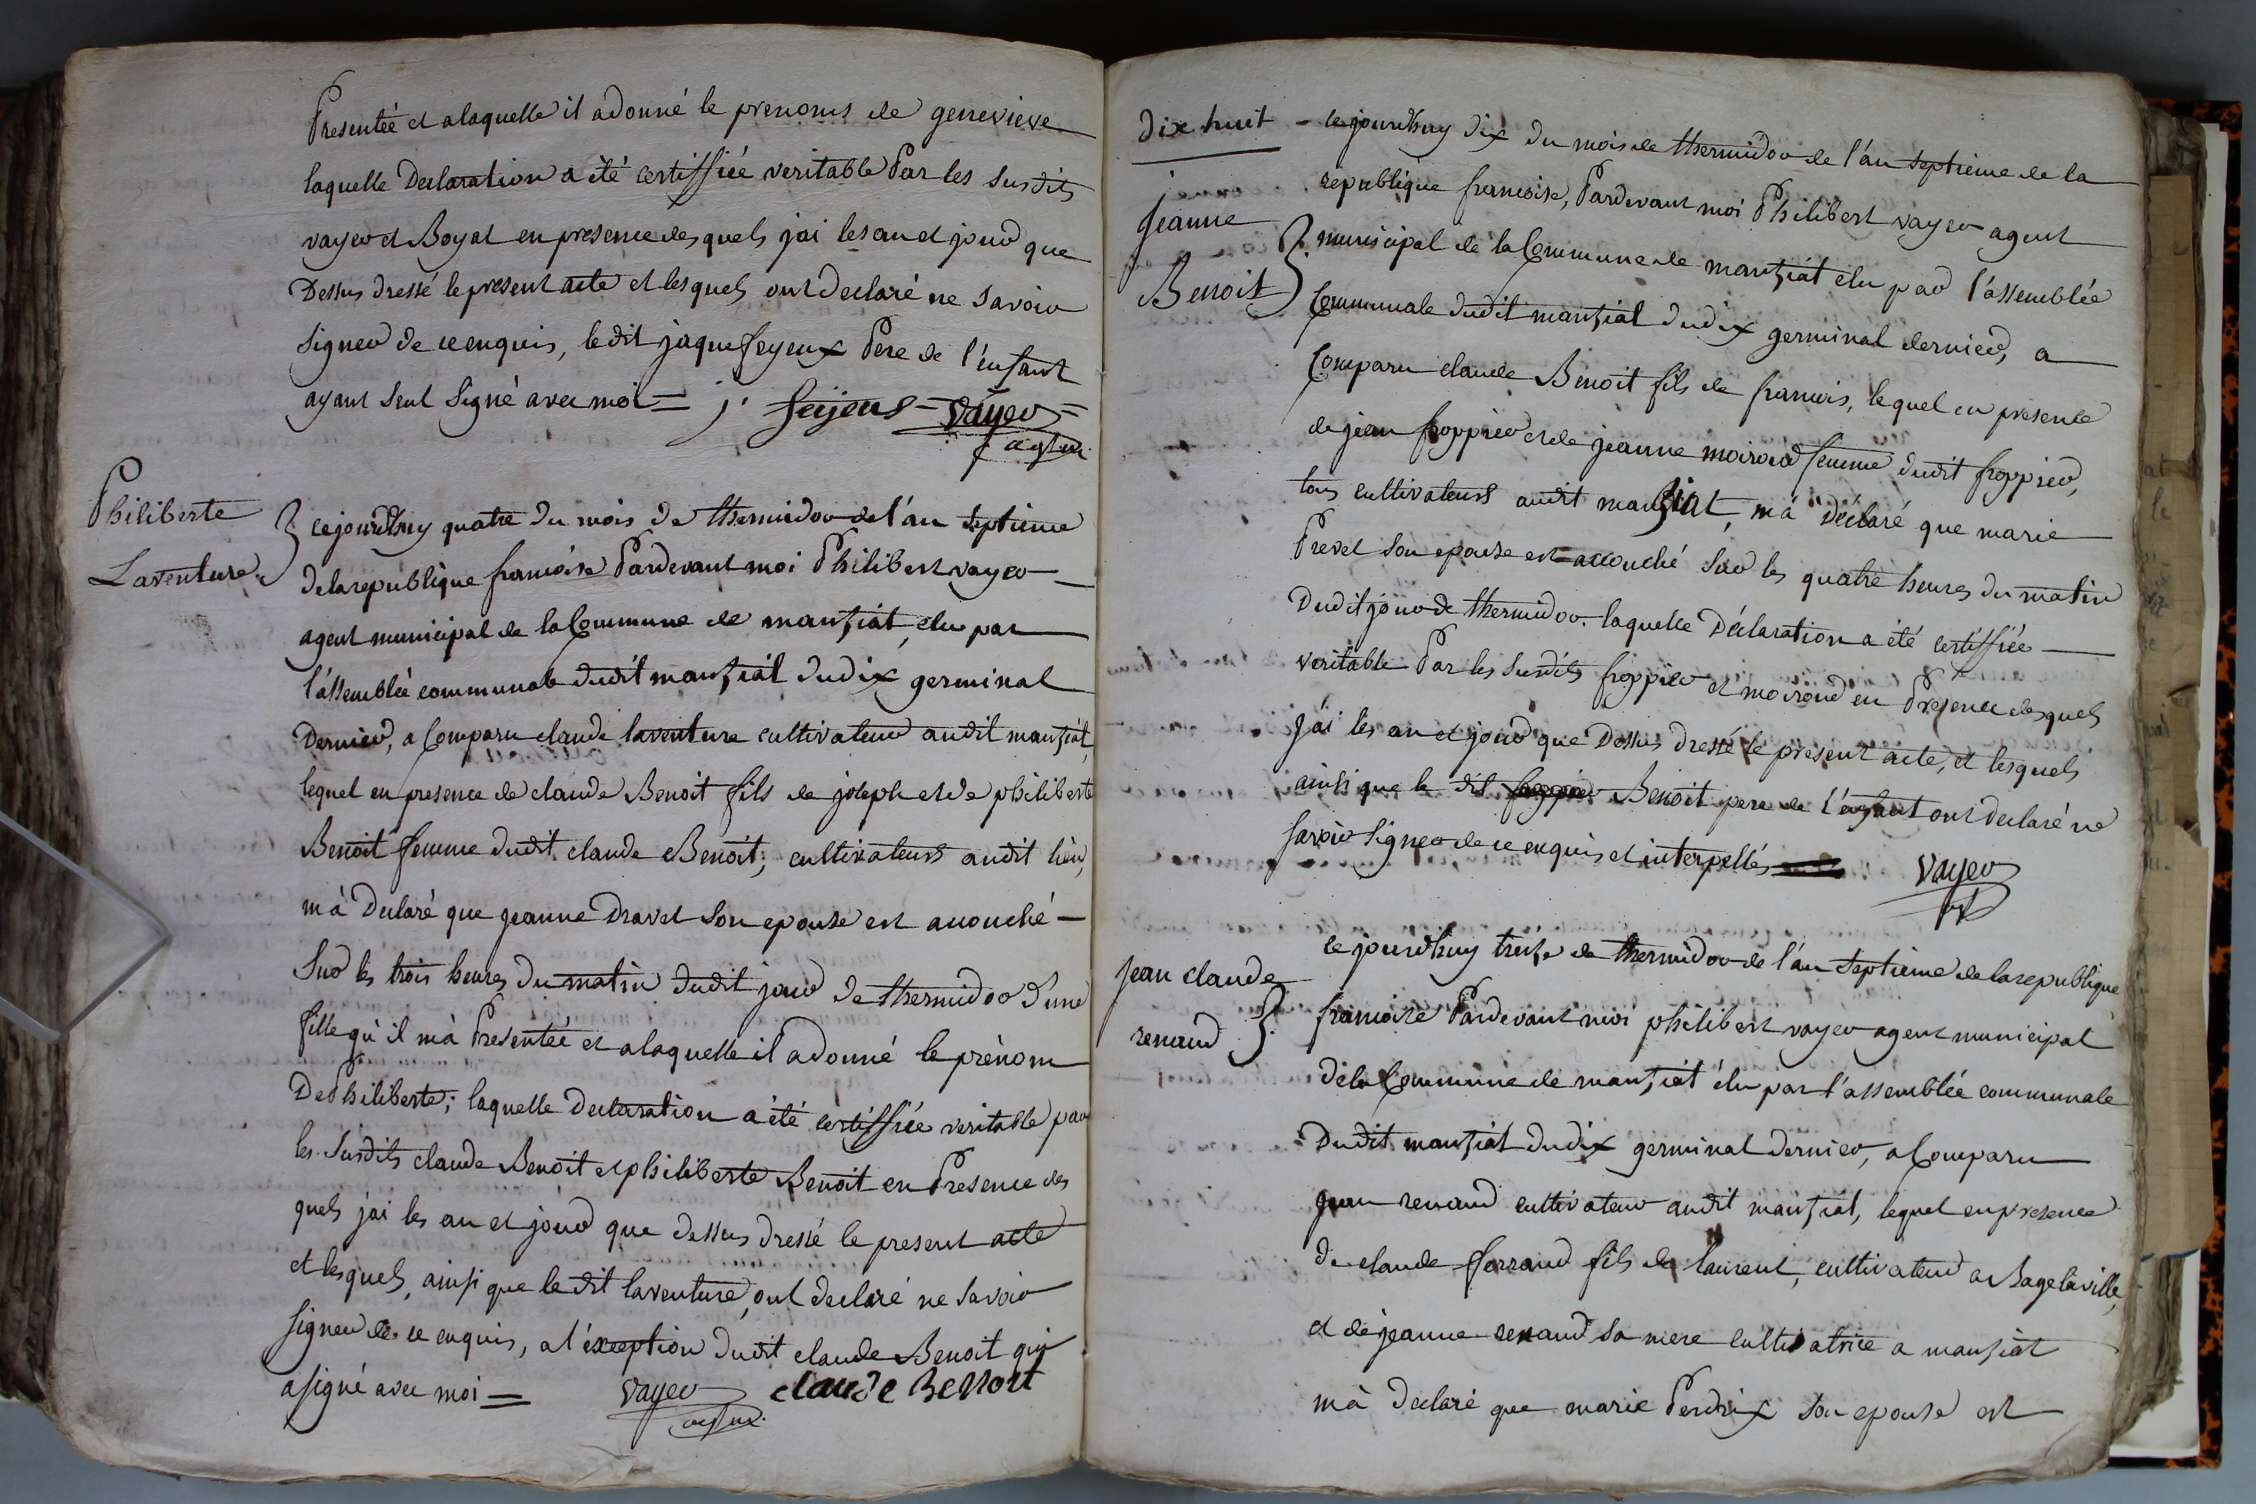 Presentée et alaquelle il adonné le prenoms de genevieve
laquelle Declaration a été certiffiée veritable Par les susdits
vayer et Boyat en presence desquels jai les an et jour que
Dessus dressé le present acte et lesquels ont declaré ne savoir
signer de ce enquis, le dit jaque feyeux Pere de l'enfant
ayant seul signé avec moi = j. feijeus = vayer =
agent
Philiberte
Laventure
cejourdhuy quatre du mois de thermidor de l'an septieme
delarepublique francoise Pardevant moi Philibert vayer
agent municipal de la Commune de manziat, elu par
l'assemblée communale dudit manziat dudix germinal
Dernier, a Comparu claude laventure cultivateur audit manziat,
lequel en presence de claude Benoit fils de joseph et de philiberte
Benoit femme dudit claude Benoit; cultivateurs audit lieu,
m'à Declaré que jeanne Dravet son epouse est accouché
sur les trois heures du matin dudit jour de thermidor d'une
fille qu'il m'à Presentée et alaquelle il adonné le prénom
De Philiberte; laquelle declaration a été certiffiée veritable par
les susdits claude Benoit et philiberte Benoit en Presence des
quels jai les an et jour que dessus dressé le present acte
et lesquels, ainsi que le dit laventure, ont declaré ne savoir
signer de ce enquis, a l'exception dudit claude Benoit qui
asigné avec moi = vayer claude Benoit
agent
dix huit
jeanne
Benoit
cejourdhuy dix du mois de thermidor de l'an septieme de la
republique francoise, Pardevant moi Philibert vayer agent
municipal de la Commune de manziat elu par l'assemblée
Communale dudit manziat dudix germinal dernier, a
Comparu claude Benoit fils de francois, lequel en presence
de jean froppier et de jeanne moiroud femme dudit froppier,
tous cultivateurs audit manziat, m'à déclaré que marie
Prevet son epouse est accouché sur les quatre heures du matin
Dudit jour de thermidor. laquelle Déclaration a été certiffiée
veritable Par les susdits froppier et moiroud en Presence desquels
J'ai les an et jour que Dessus dressé le present acte, et lesquels
ainsi que le dit froppier Benoit pere de l'enfant ont declaré ne
savoir signer de ce enquis et interpellés
vayer
jean claude
renaud
cejourdhuy treize de thermidor de l'an septieme de larepublique
francoise Pardevant moi philibert vayer agent municipal
dela Commune de manziat élu par l'assemblée communale
Dudit manziat dudix germinal dernier, a Comparu
jean renaud cultivateur audit manziat, lequel en presence
de claude ferrand fils de laurent, cultivateur a Bagelaville,
et de jeanne renaud sa mere cultivatrice a manziat
m'à declaré que marie Perdrix son epouse est